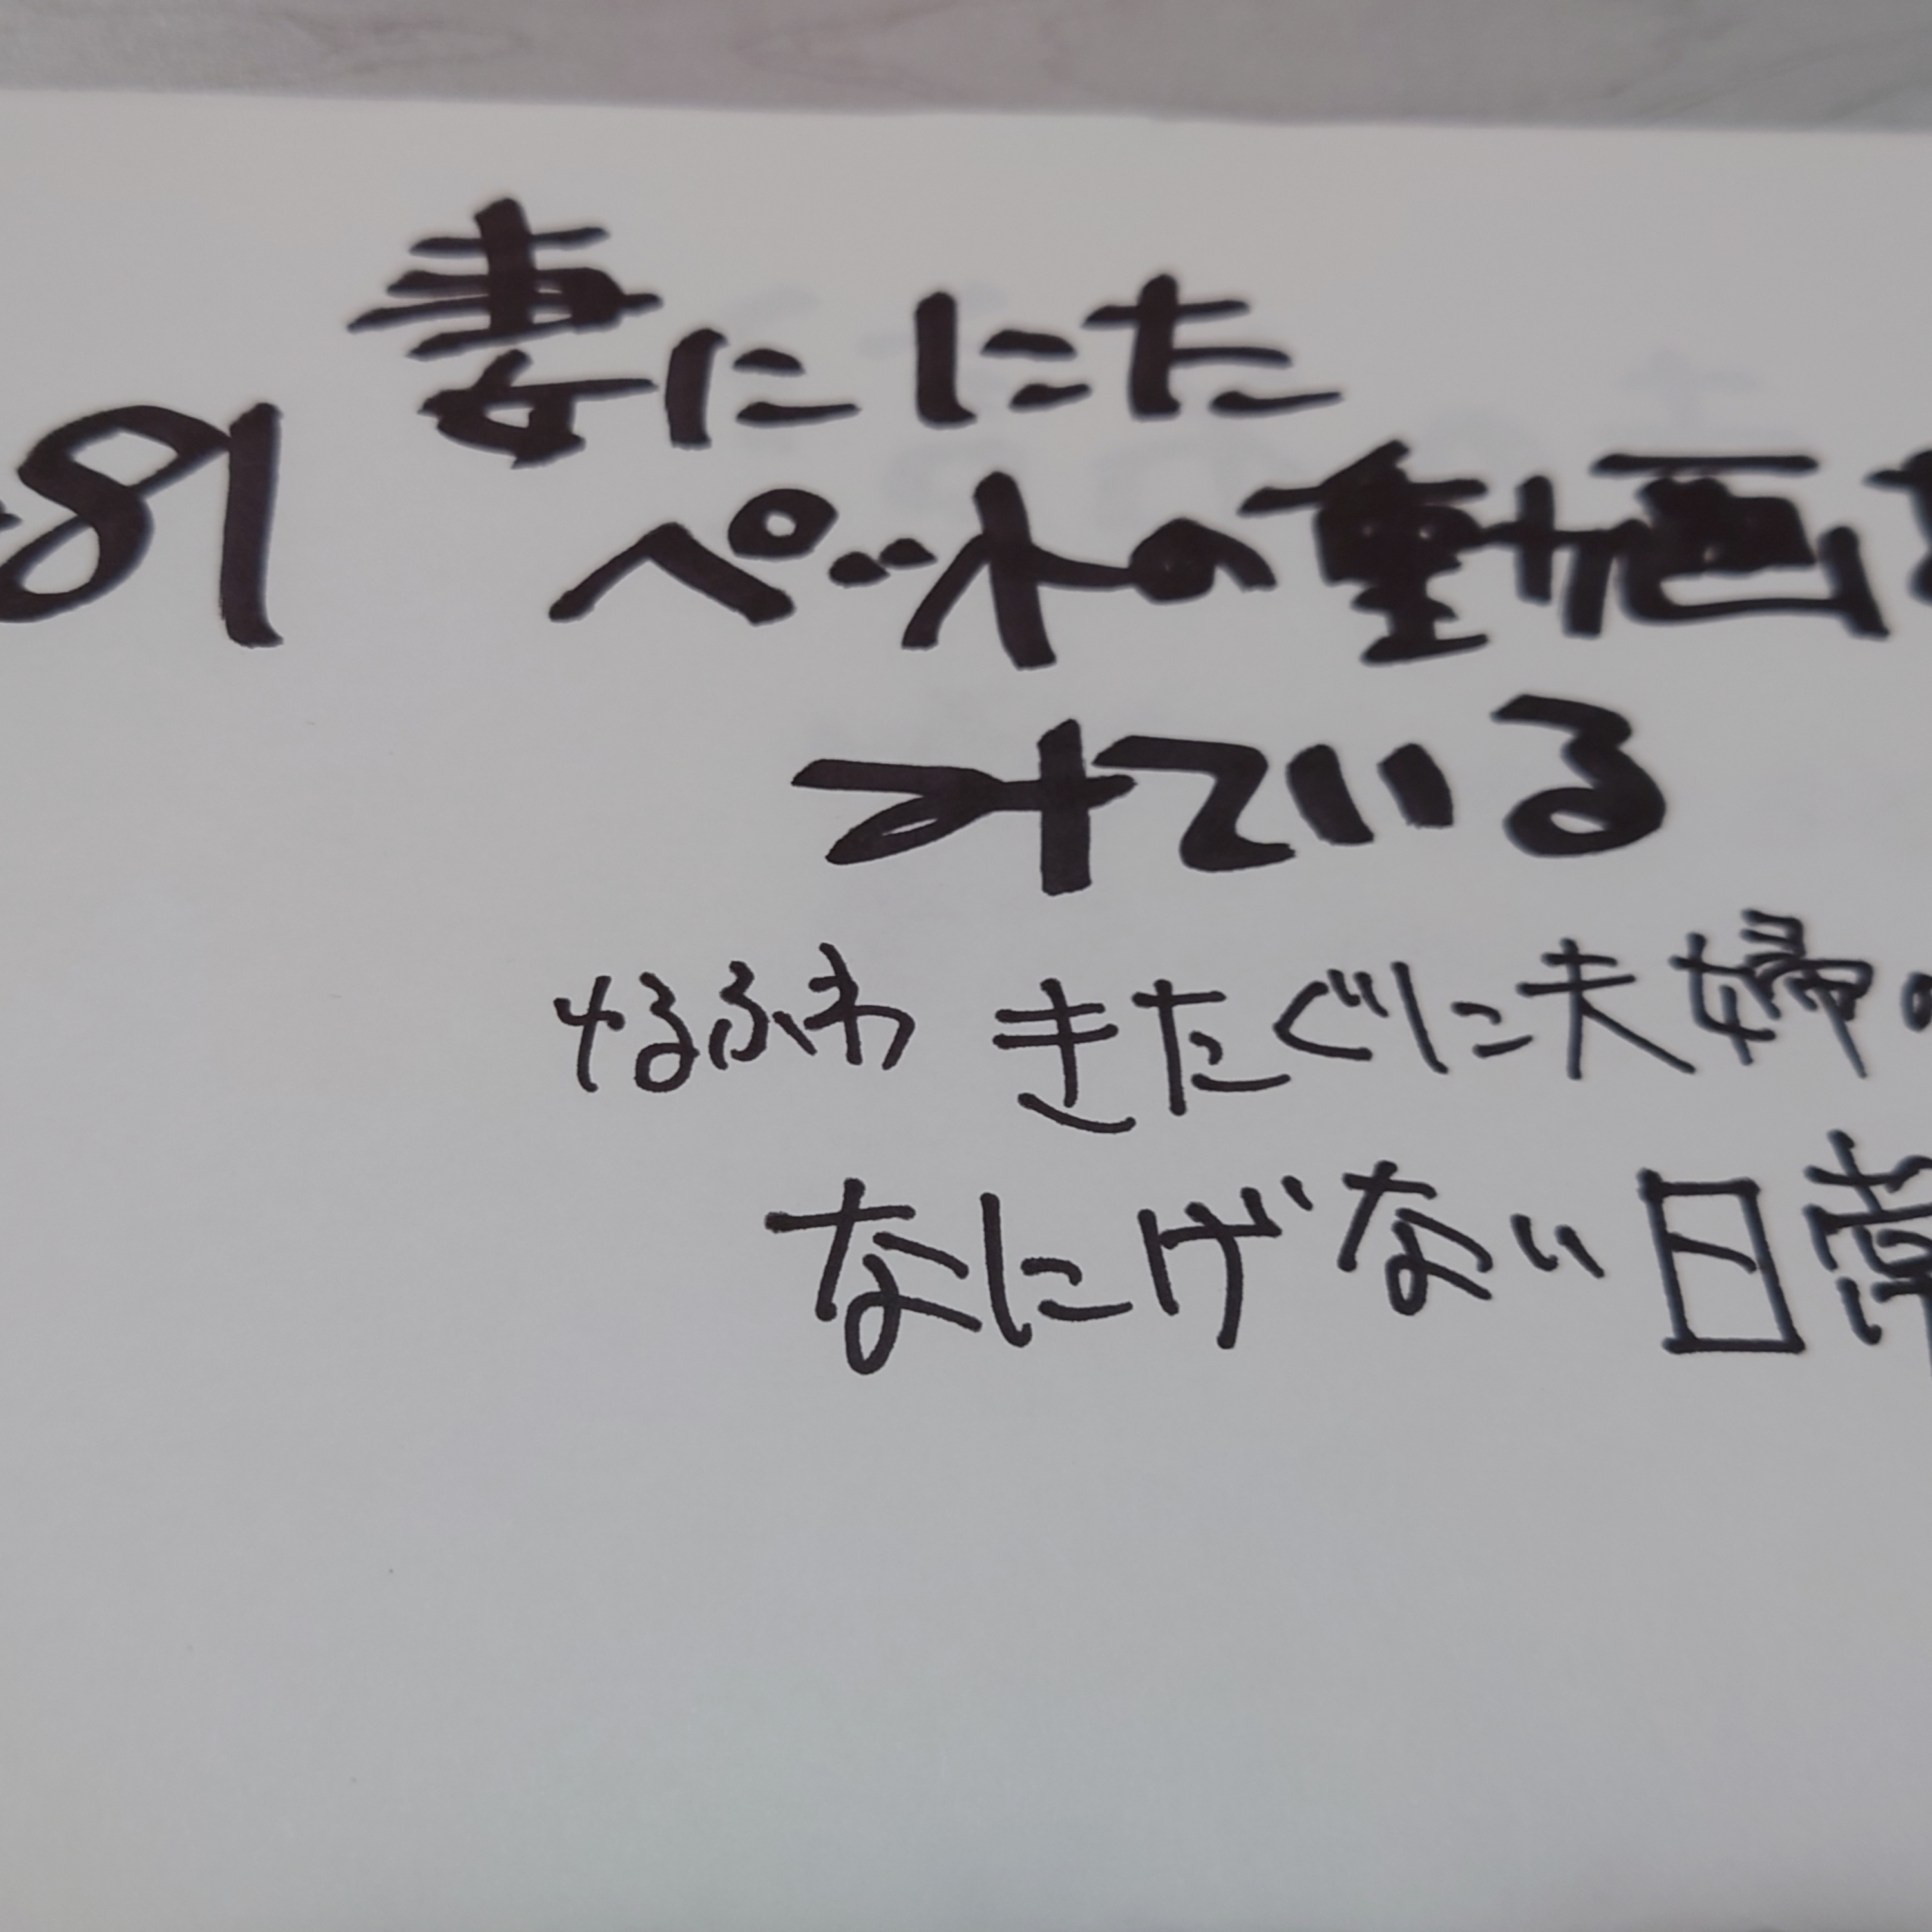 81
妻ににた
ペットの動画
みている
ゆるふわ きたぐに夫婦の
なにげない日常